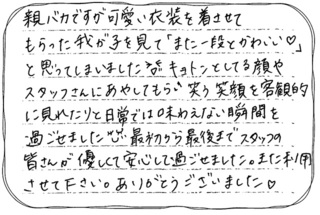 親バカですが可愛い衣装を着させて
もらった我が子を見て「また一段とかわいい♡」
と思ってしまいました キョトンとしてる顔や
スタッフさんにあやしてもらい笑う笑顔を客観的
に見れたりと日常では味わえない瞬間を
過ごせました 最初から最後までスタッフの
皆さんが優しくて安心して過ごせました。また利用
させて下さい。ありがとうございました♡